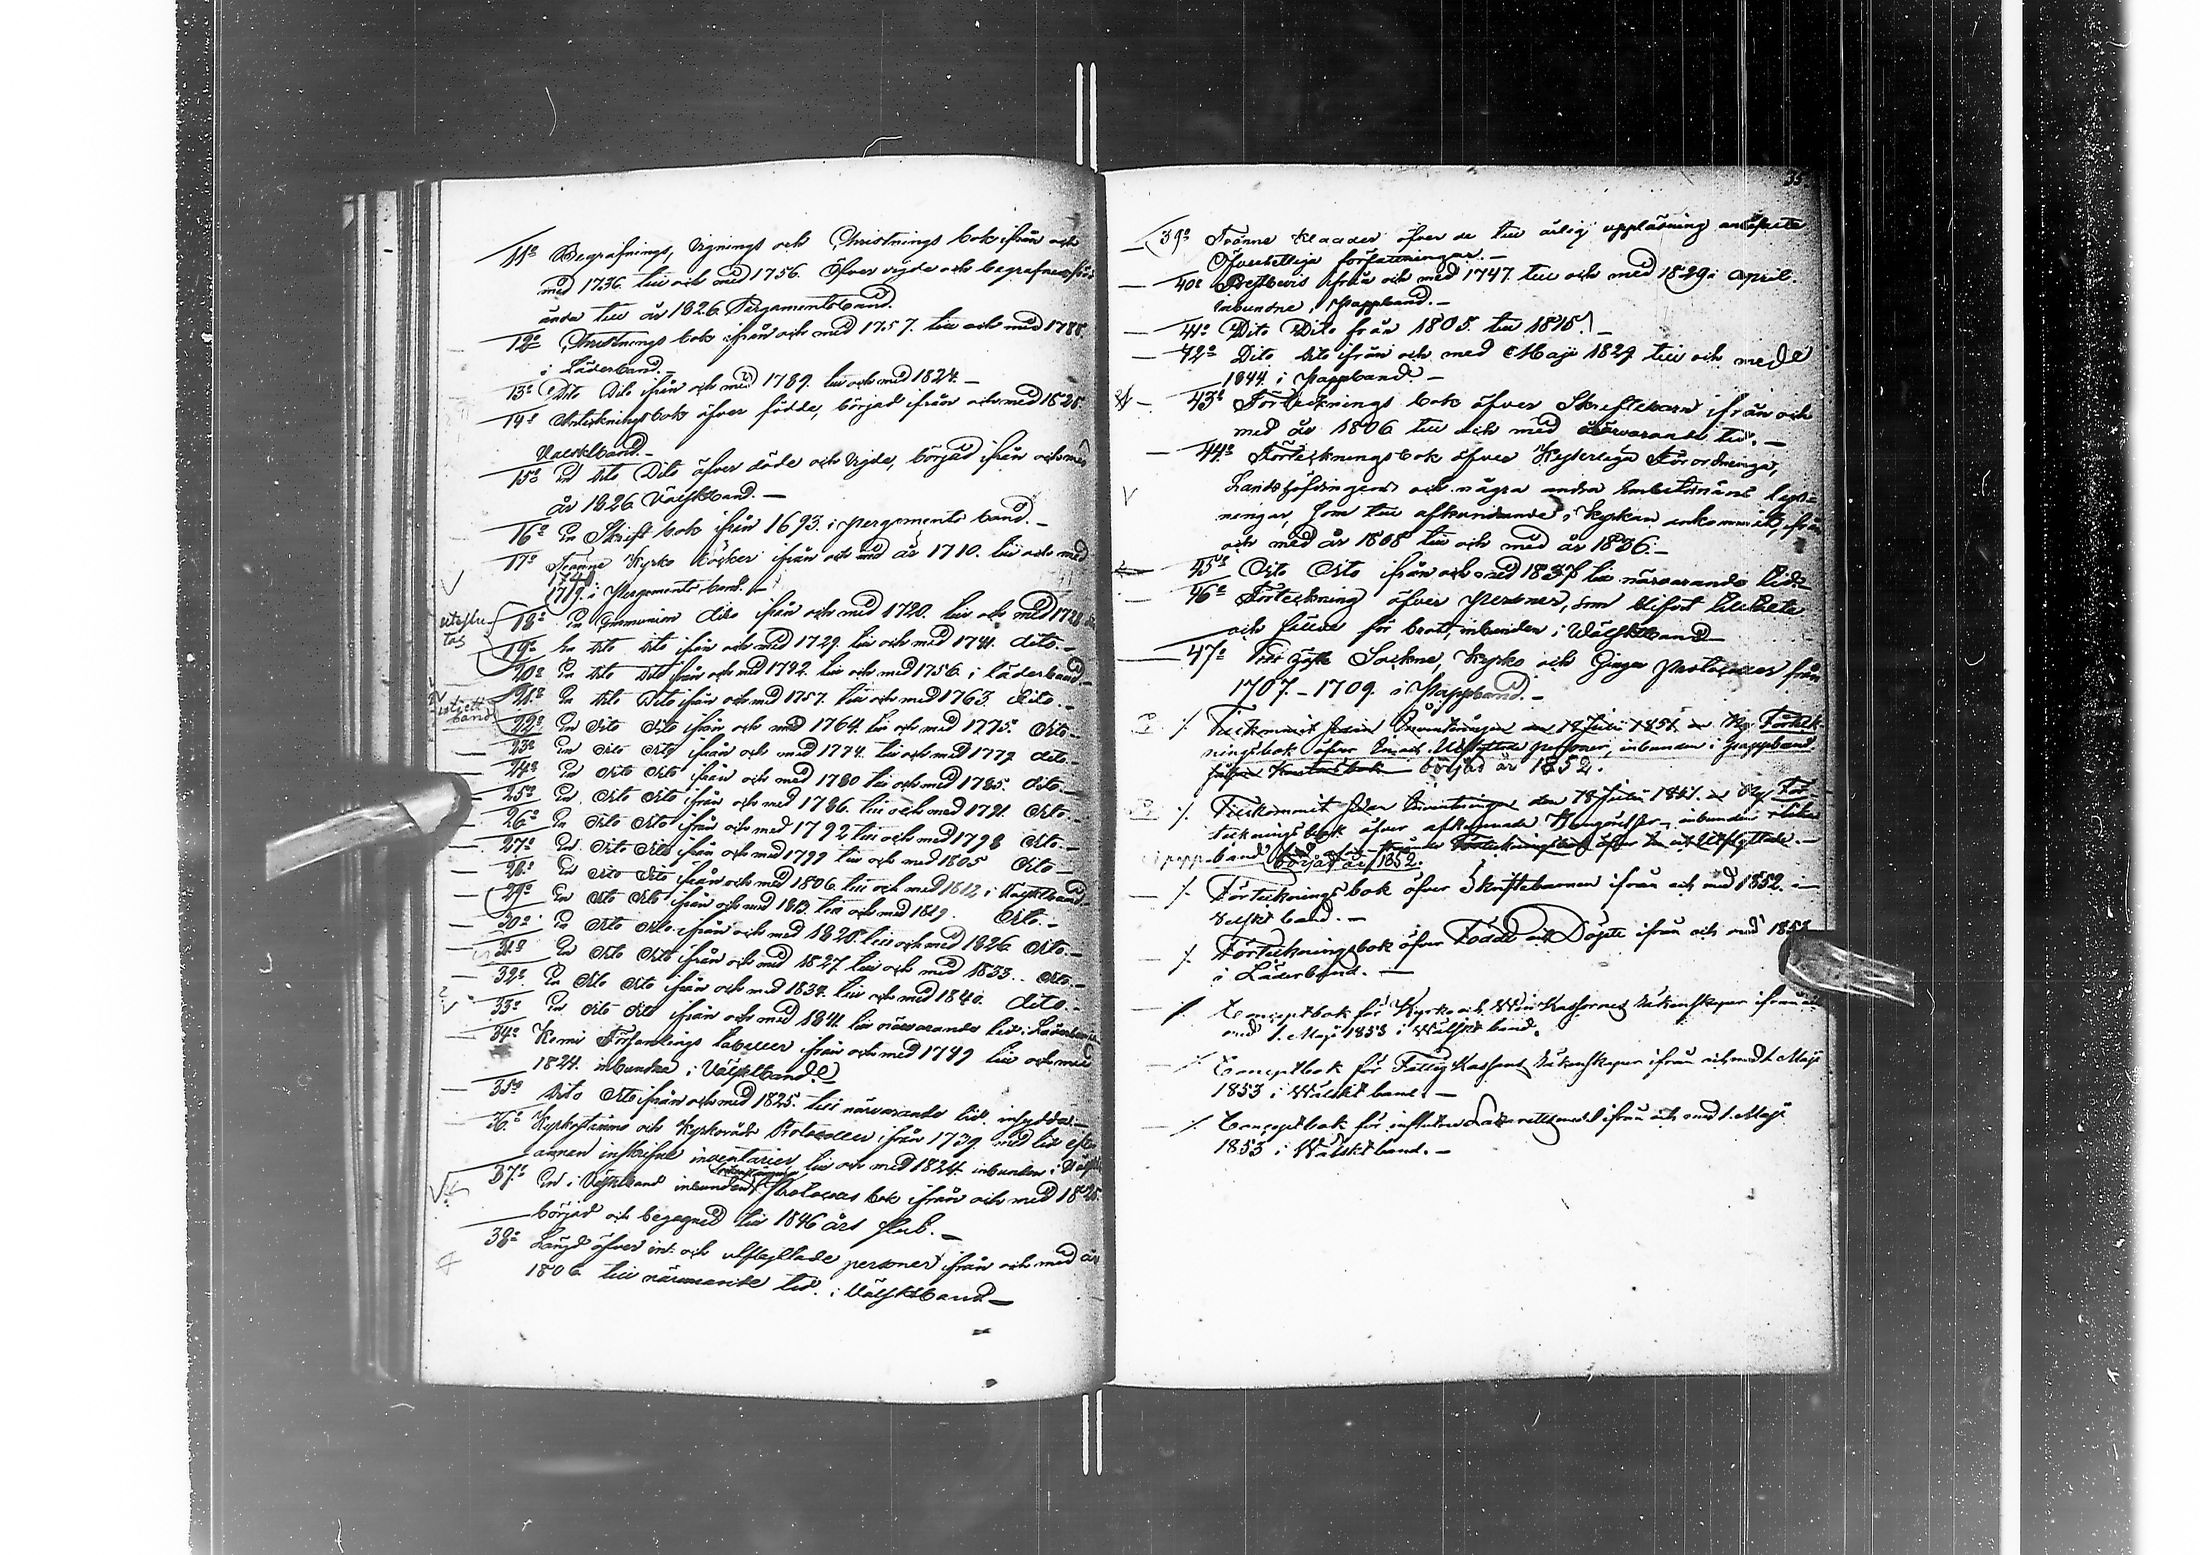 11º Begrafnings, Vignings och Christnings bok ifrån och
med 1736. till och med 1756. Öfver vigde och begrafne
ända till år 1826. Pergamentsband.
12º Christnings bok ifrån och med 1757. till och med 1788.
i Läderband.
13º Dito Dito ifrån och med 1789. till och med 1824.
14º Anteknings bok öfver födde, börjad ifrån och med 1825
Välsktband.
15º En dito Dito öfver döde och vigde, börjad ifrån och med
år 1826 Välsktband.
16º En Skrift bok ifrån 1693. i pergaments band.
17º Tvänne Kyrko böcker ifrån och med år 1710. till och med
1741
1719. i Pergaments band.
18º En Communion dito ifrån och med 1720. till och med 1728
19º En dito dito ifrån och med 1729. till och med 1741. dito.
20º En dito dito ifrån och med 1742. till och med 1756. i läderband.
21º En dito Dito ifrån och med 1757. till och med 1763. dito.
istjett
band
22º En dito dito ifrån och med 1764. till och med 1775. dito.
23º En dito dito ifrån och med 1774. till och med 1779 dito.
24º En dito dito ifrån och med 1780 till och med 1785. dito.
25º En dito dito ifrån och med 1786. till och med 1791. dito.
26º En dito dito ifrån och med 1792 till och med 1798 dito.
27º En dito dito ifrån och med 1799 till och med 1805 dito
28º En dito dito ifrån och med 1806. till och med 1812 i Välsktband.
29º En dito dito ifrån och med 1813. till och med 1819. dito.
30º En dito dito ifrån och med 1820. till och med 1826. dito.
31º En dito dito ifrån och med 1827. till och med 1833. dito.
32º En dito dito ifrån och med 1834. till och med 1840. dito.
33º En dito dito ifrån och med 1841. till närvarande tid i Läderband
34º Kemi Församlings tabeller ifrån och med 1749 till och med
1824. inbundna i Välsktband.
35º Dito dito ifrån och med 1825. till närvarande tid.
36º Kyrkostämmo och Kyrkoråds Protocoller ifrån 1739. med
inskrifne inventarier till och med 1824. inbunden i
37º En i Välsktband inbunden Protocolls bok ifrån och med 1825
börjad och begagnad till 1846 års slut.
38º Längd öfver in- och utflyttade personer ifrån och med år
1806. till närvarande tid. i Välsktband
35
39º Tvänne öfver de till årlig uppläsning
Öfverhetliga författningar.
40º Prestbevis ifrån och med 1747. till och med 1829 i April.
inbundne i Pappband.
41º Dito Dito från 1805. till 1815.
42º Dito dito ifrån och med Maji 1829 till och med
1844. i Pappband.
43º Förteknings bok öfver Skriftebarn ifrån och
med år 1806 till och med närvarande tid.
44º Förteknings bok öfver Kejserliga Förordningar,
Landshöfdingens och några andra Embetsmäns
som till afkunnande i Kyrkan ankommit, ifrån
och med år 1808 till och med år 1836.
45º Dito Dito ifrån och med 1837 till närvarande tid.
46º Förtekning öfver personer, som blifvit tilltalte
och fällde för brott, inbunden i Välsktband
47º Ett häfte Sockne, Kyrko och Protocoller från
1707.-1709. i Pappband.
Tillkommit sedan Inventeringen den 18 Juli 1851. en Ny Förtek-
ningsbok öfver In och Utflyttade personer, inbunden i pappband
börjad år 1852.
Tillkommit sedan Inventeringen den 18 Juli 1851. en Ny För-
tecknings bok öfver afkunnade Kungörelser, inbunden
i papp band börjad år 1852.
Förteknings bok öfver Skriftebarnen ifrån och med 1852. i
Velskt band.
Förteckningsbok öfver Födde och Döpte ifrån och med 1853
i Läderband.
Conceptbok för Kyrko och Vin Kassornas Räkenskaper ifrån och
med 1. Maji 1853 i Wälskt band.
Conceptbok för Fattig Kassans Räkenskaper ifrån och med 1. Maji
1853 i Wälskt band.
Conceptbok för ifrån och med 1. Maji
1853 i Wälskt band.